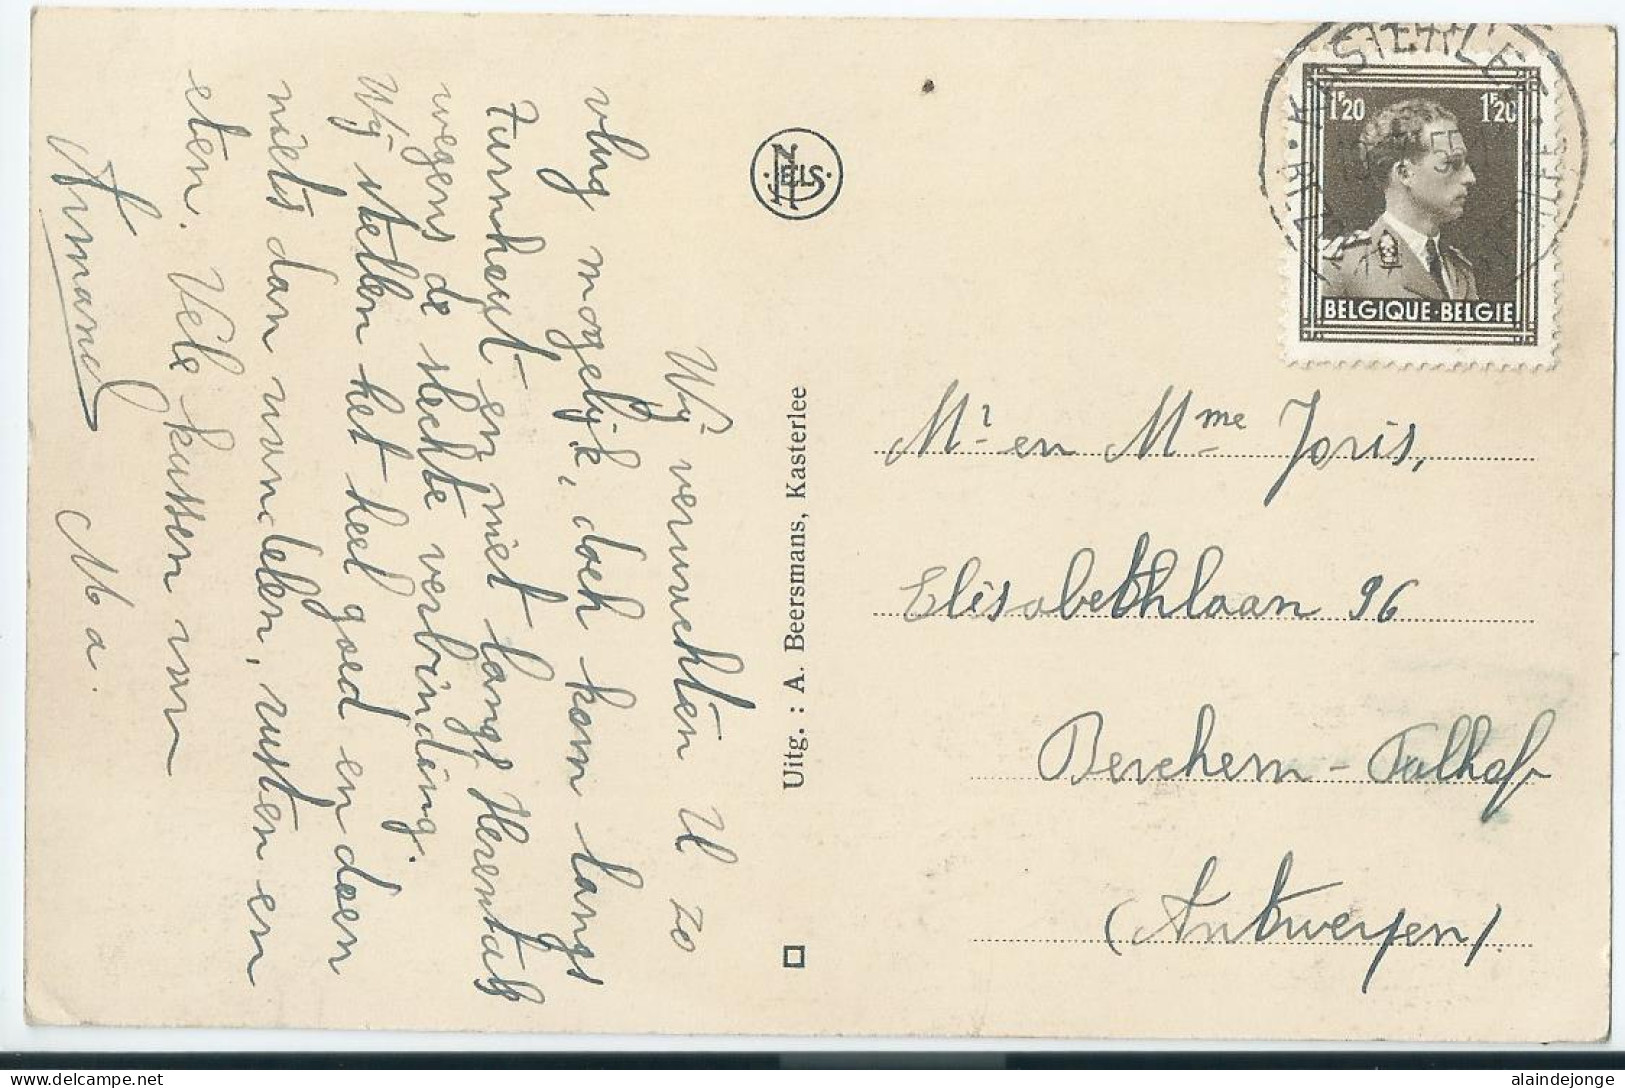 Wÿ verwachten U zo
vlug mogelÿk, doch kom langs
Turnhout en niet langs Herentals
wegens de slechte verbinding.
Wÿ stellen het heel goed en doen
niets dan wandelen, rusten en
eten. Vele kussen van
Armand Ma.
NELS
Uitg. : A. Beersmans, Kasterlee
KASTERLEE
1F20
1F20
BELGIQUE·BELGIE
Mr en Mme Joris,
Elisabethlaan 96
Berchem-Valhof
(Antwerpen).
alaindejonge
delcampe.net